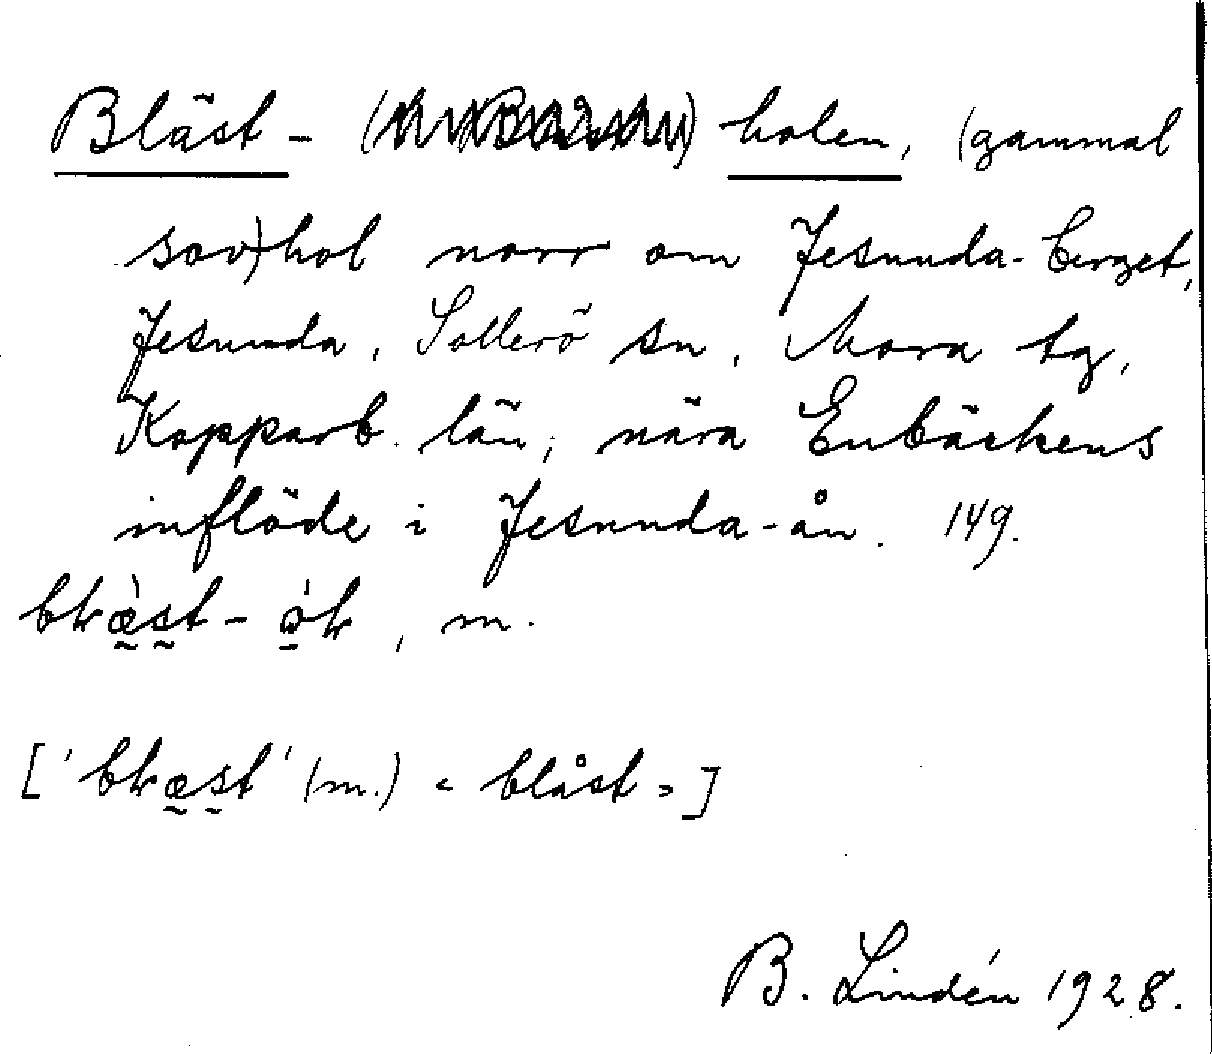 Bläst- holen, (gammal
sov)hol norr om Jesunda-berget,
Jesunda, Sollerö sn, Mora tg,
Kopparb. län, nära Enbäckens
inflöde i Jesunda-ån. 149.
m.
(m.) « blåst »]
B. Lindén 1928.